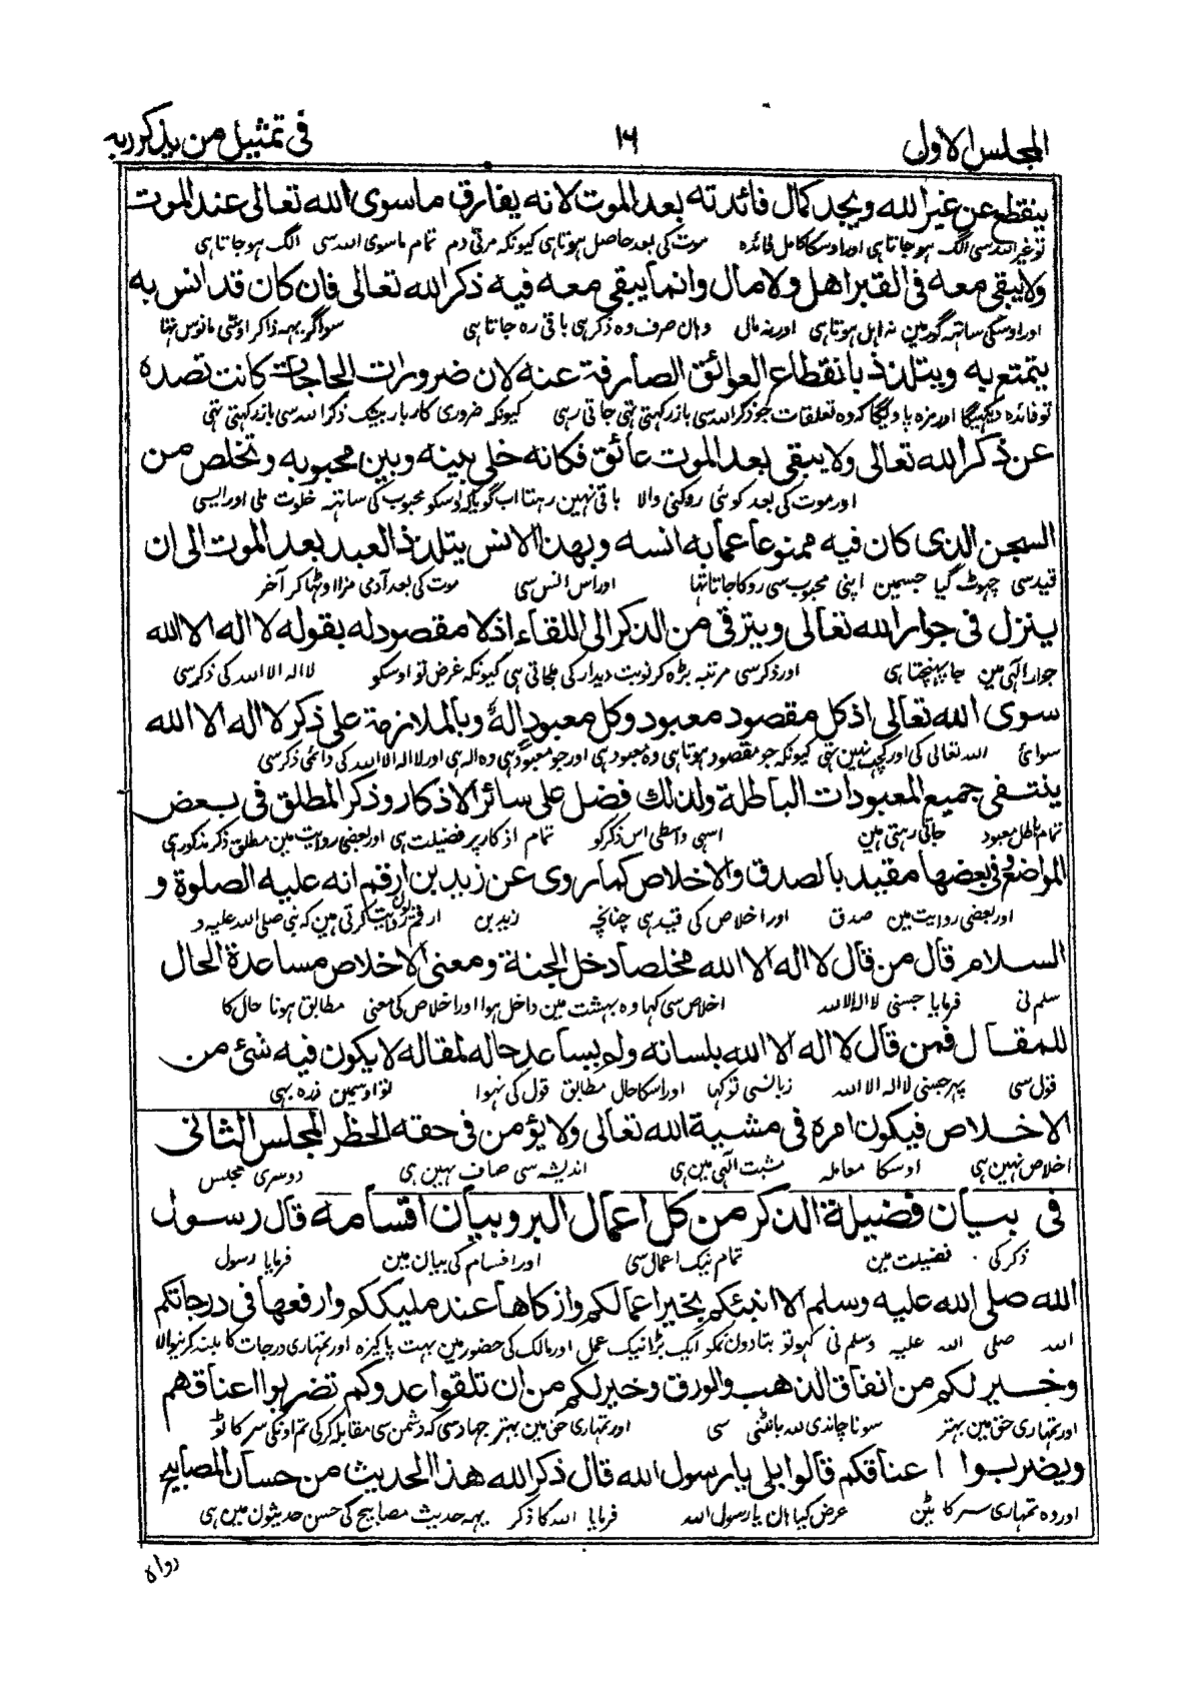 المجلس الاول
١٦
فى تمثيل من يذكر ربه
ينقطع عن غير الله ويجد كمال فائدته بعد الموت لانه يفارق ماسوى الله تعالى عند الموت
تو غیر اللہ سی الگ ہو جاتا ہی اور اوسکا کامل فائدہ موت کی بعد حاصل ہوتا ہی کیونکہ مرتی دم تمام ماسوی اللہ سی الگ ہو جاتا ہی
ولا يبقى معه فى القبر اهل ولا مال وانما يبقى معه فيه ذكر الله تعالى فان كان قد انس به
اور اوسکی ساتہہ گور مین نہ اہل ہوتا ہی اور نہ مال وہان صرف وہ ذکر ہی باقی رہ جاتا ہی سو اگر یہہ ذاکر اوسی مانوس تہا
يتمتع به ويتلذذ بانقطاع العوائق الصارفة عنه لان ضرورات الحاجات كانت تصده
تو فائدہ دیکہیگا اور مزہ پاویگا کہ وہ تعلقات جو ذکر اللہ سی باز رکہتی تہی جاتی رہی کیونکہ ضروری کاربار بیشک ذکر اللہ سی باز رکہتی تہی
عن ذكر الله تعالى ولا يبقى بعد الموت عائق فكانه خلى بينه وبين محبوبه وتخلص من
اور موت کی بعد کوئی روکنی والا باقی نہین رہتا اب گویا کہ اوسکو محبوب کی ساتہہ خلوت ملی اور ایسی
السجن الذى كان فيه ممنوعا عما به انسه وبهذا الانس يتلذذ العبد بعد الموت الى ان
قید سی چہوٹ گیا جسمین اپنی محبوب سی روکا جاتا تہا اور اس انس سی موت کی بعد آدمی مزا اوٹہا کر آخر
ينزل فى جوار الله تعالى ويترقى من الذكر الى اللقاء اذ لا مقصود له بقوله لا اله الا الله
جوار الٰہی مین جا پہنچتا ہی اور ذکر سی مرتبہ بڑہ کر نوبت دیدار کی آجاتی ہی کیونکہ غرض تو اوسکو لا الہ الا اللہ کی ذکر سی
سوى الله تعالى اذ كل مقصود معبود وكل معبود اله وبالملازمة على ذكر لا اله الا الله
سوائ اللہ تعالی کی اور کچہہ نہین تہی کیونکہ جو مقصود ہوتا ہی وہ معبود ہی اور جو معبود ہی وہ الہ ہی اور لا الہ الا اللہ کی دائمی ذکر سی
ينتفى جميع المعبودات الباطلة ولذلك فضل على سائر الاذكار وذكر المطلق فى بعض
تمام باطل معبود جاتی رہتی ہین اسی واسطی اس ذکر کو تمام اذکار پر فضیلت ہی اور بعضی روایت مین مطلق ذکر مذکور ہی
المواضع وفى بعضها مقيد بالصدق والاخلاص كما روى عن زيد بن ارقم انه عليه الصلوة و
اور بعضی روایت مین صدق اور اخلاص کی قید ہی چنانچہ زید بن ارقم روایت کرتی ہین کہ نبی صلی اللہ علیہ و
السلام قال من قال لا اله الا الله مخلصا دخل الجنة ومعنى الاخلاص مساعدة الحال
سلم نی فرمایا جسنی لا الہ الا اللہ اخلاص سی کہا وہ بہشت مین داخل ہوا اور اخلاص کی معنی مطابق ہونا حال کا
للمقال فمن قال لا اله الا الله بلسانه ولم يساعد حاله لمقاله لا يكون فيه شئ من
قول سی پہر جسنی لا الہ الا اللہ زبانسی تو کہا اور اسکا حال مطابق قول کی نہوا تو اوسمین ذرہ بہی
الاخلاص فيكون امره فى مشية الله تعالى ولا يؤمن فى حقه الخطر المجلس الثانى
اخلاص نہین ہی اوسکا معاملہ مشیت الٰہی مین ہی اندیشہ سی صاف نہین ہی دوسری مجلس
فى بيان فضيلة الذكر من كل اعمال البر وبيان اقسامه قال رسول
ذکر کی فضیلت مین تمام نیک اعمال سی اور اقسام کی بیان مین فرمایا رسول
الله صلى الله عليه وسلم الا انبئكم بخير اعمالكم وازكاها عند مليككم وارفعها فى درجاتكم
اللہ صلی اللہ علیہ وسلم نی کہو تو بتا دون تمکو ایک بڑا نیک عمل اور مالک کی حضور مین بہت پاکیزہ اور تمہاری درجات کا بلند کرنیوالا
وخير لكم من انفاق الذهب والورق وخير لكم من ان تلقوا عدوكم تضربوا اعناقهم
اور تمہاری حق مین بہتر سونا چاندی للہ بانٹنی سی اور تمہاری حق مین بہتر جہاد سی کہ دشمن سی مقابلہ کر کی تم اونکی سر کاٹو
ويضربوا اعناقكم قالوا بلى يا رسول الله قال ذكر الله هذا الحديث من حسان المصابيح
اور وہ تمہاری سر کاٹین عرض کیا ہان یا رسول اللہ فرمایا اللہ کا ذکر یہہ حدیث مصابیح کی حسن حدیثون مین ہی
رواه